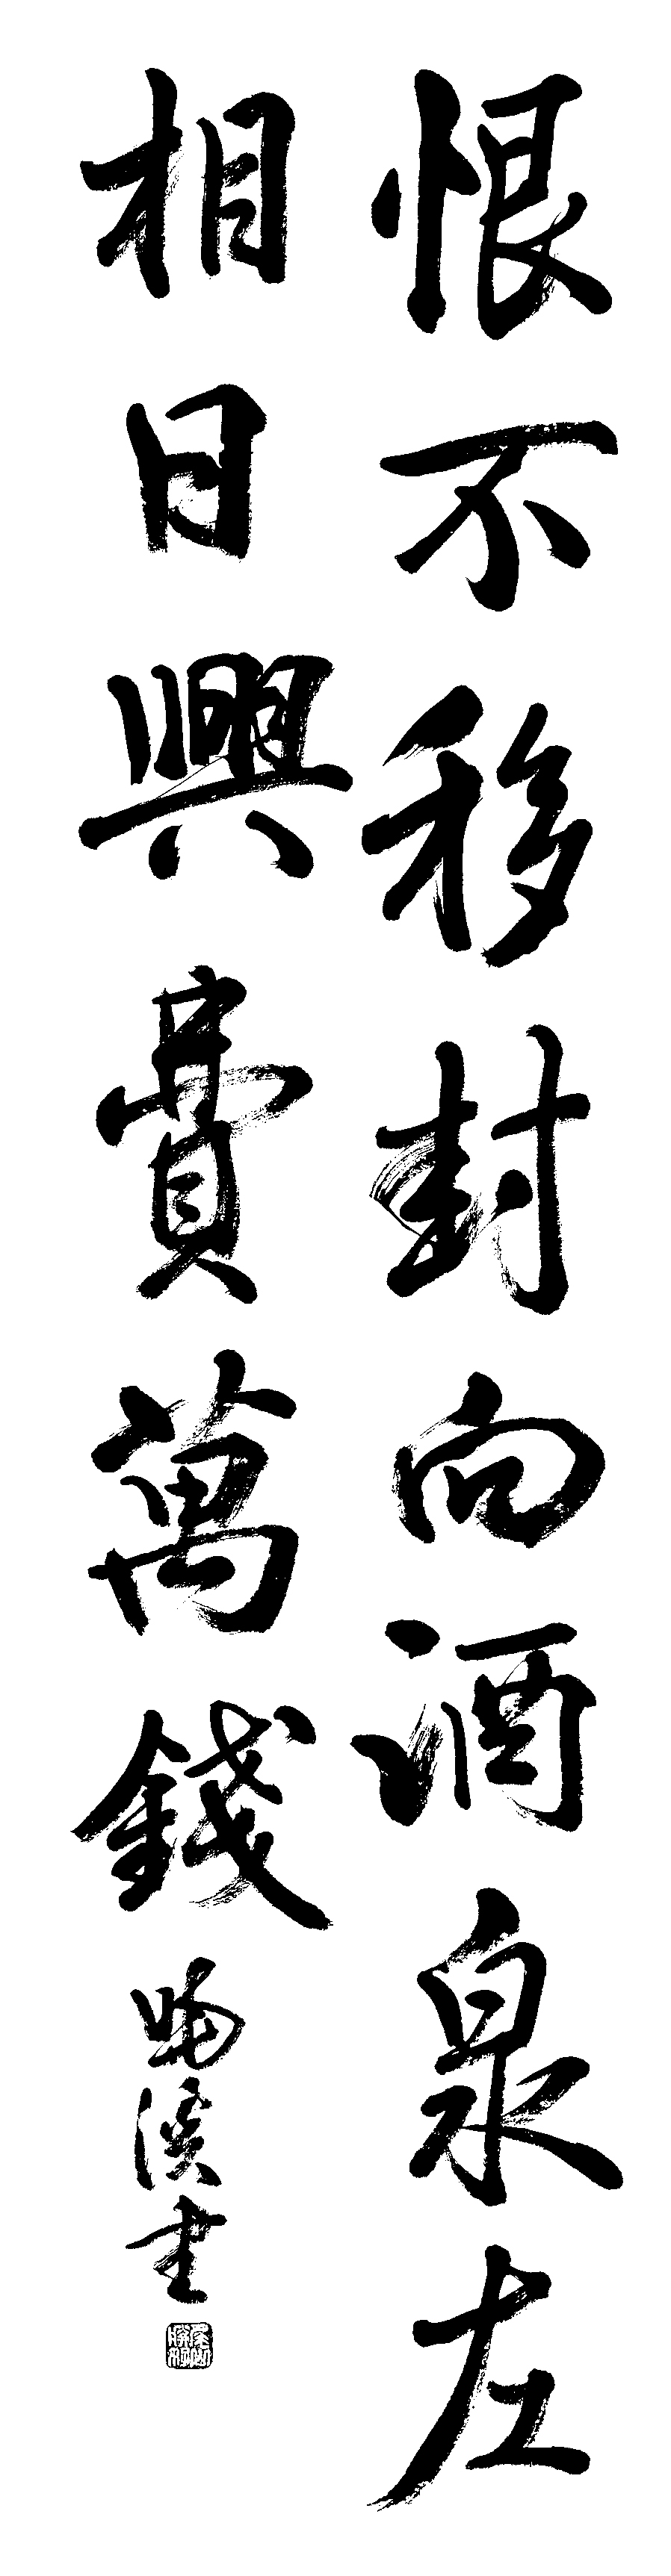 恨不移封向酒泉左
相日興費萬錢
陽溪书